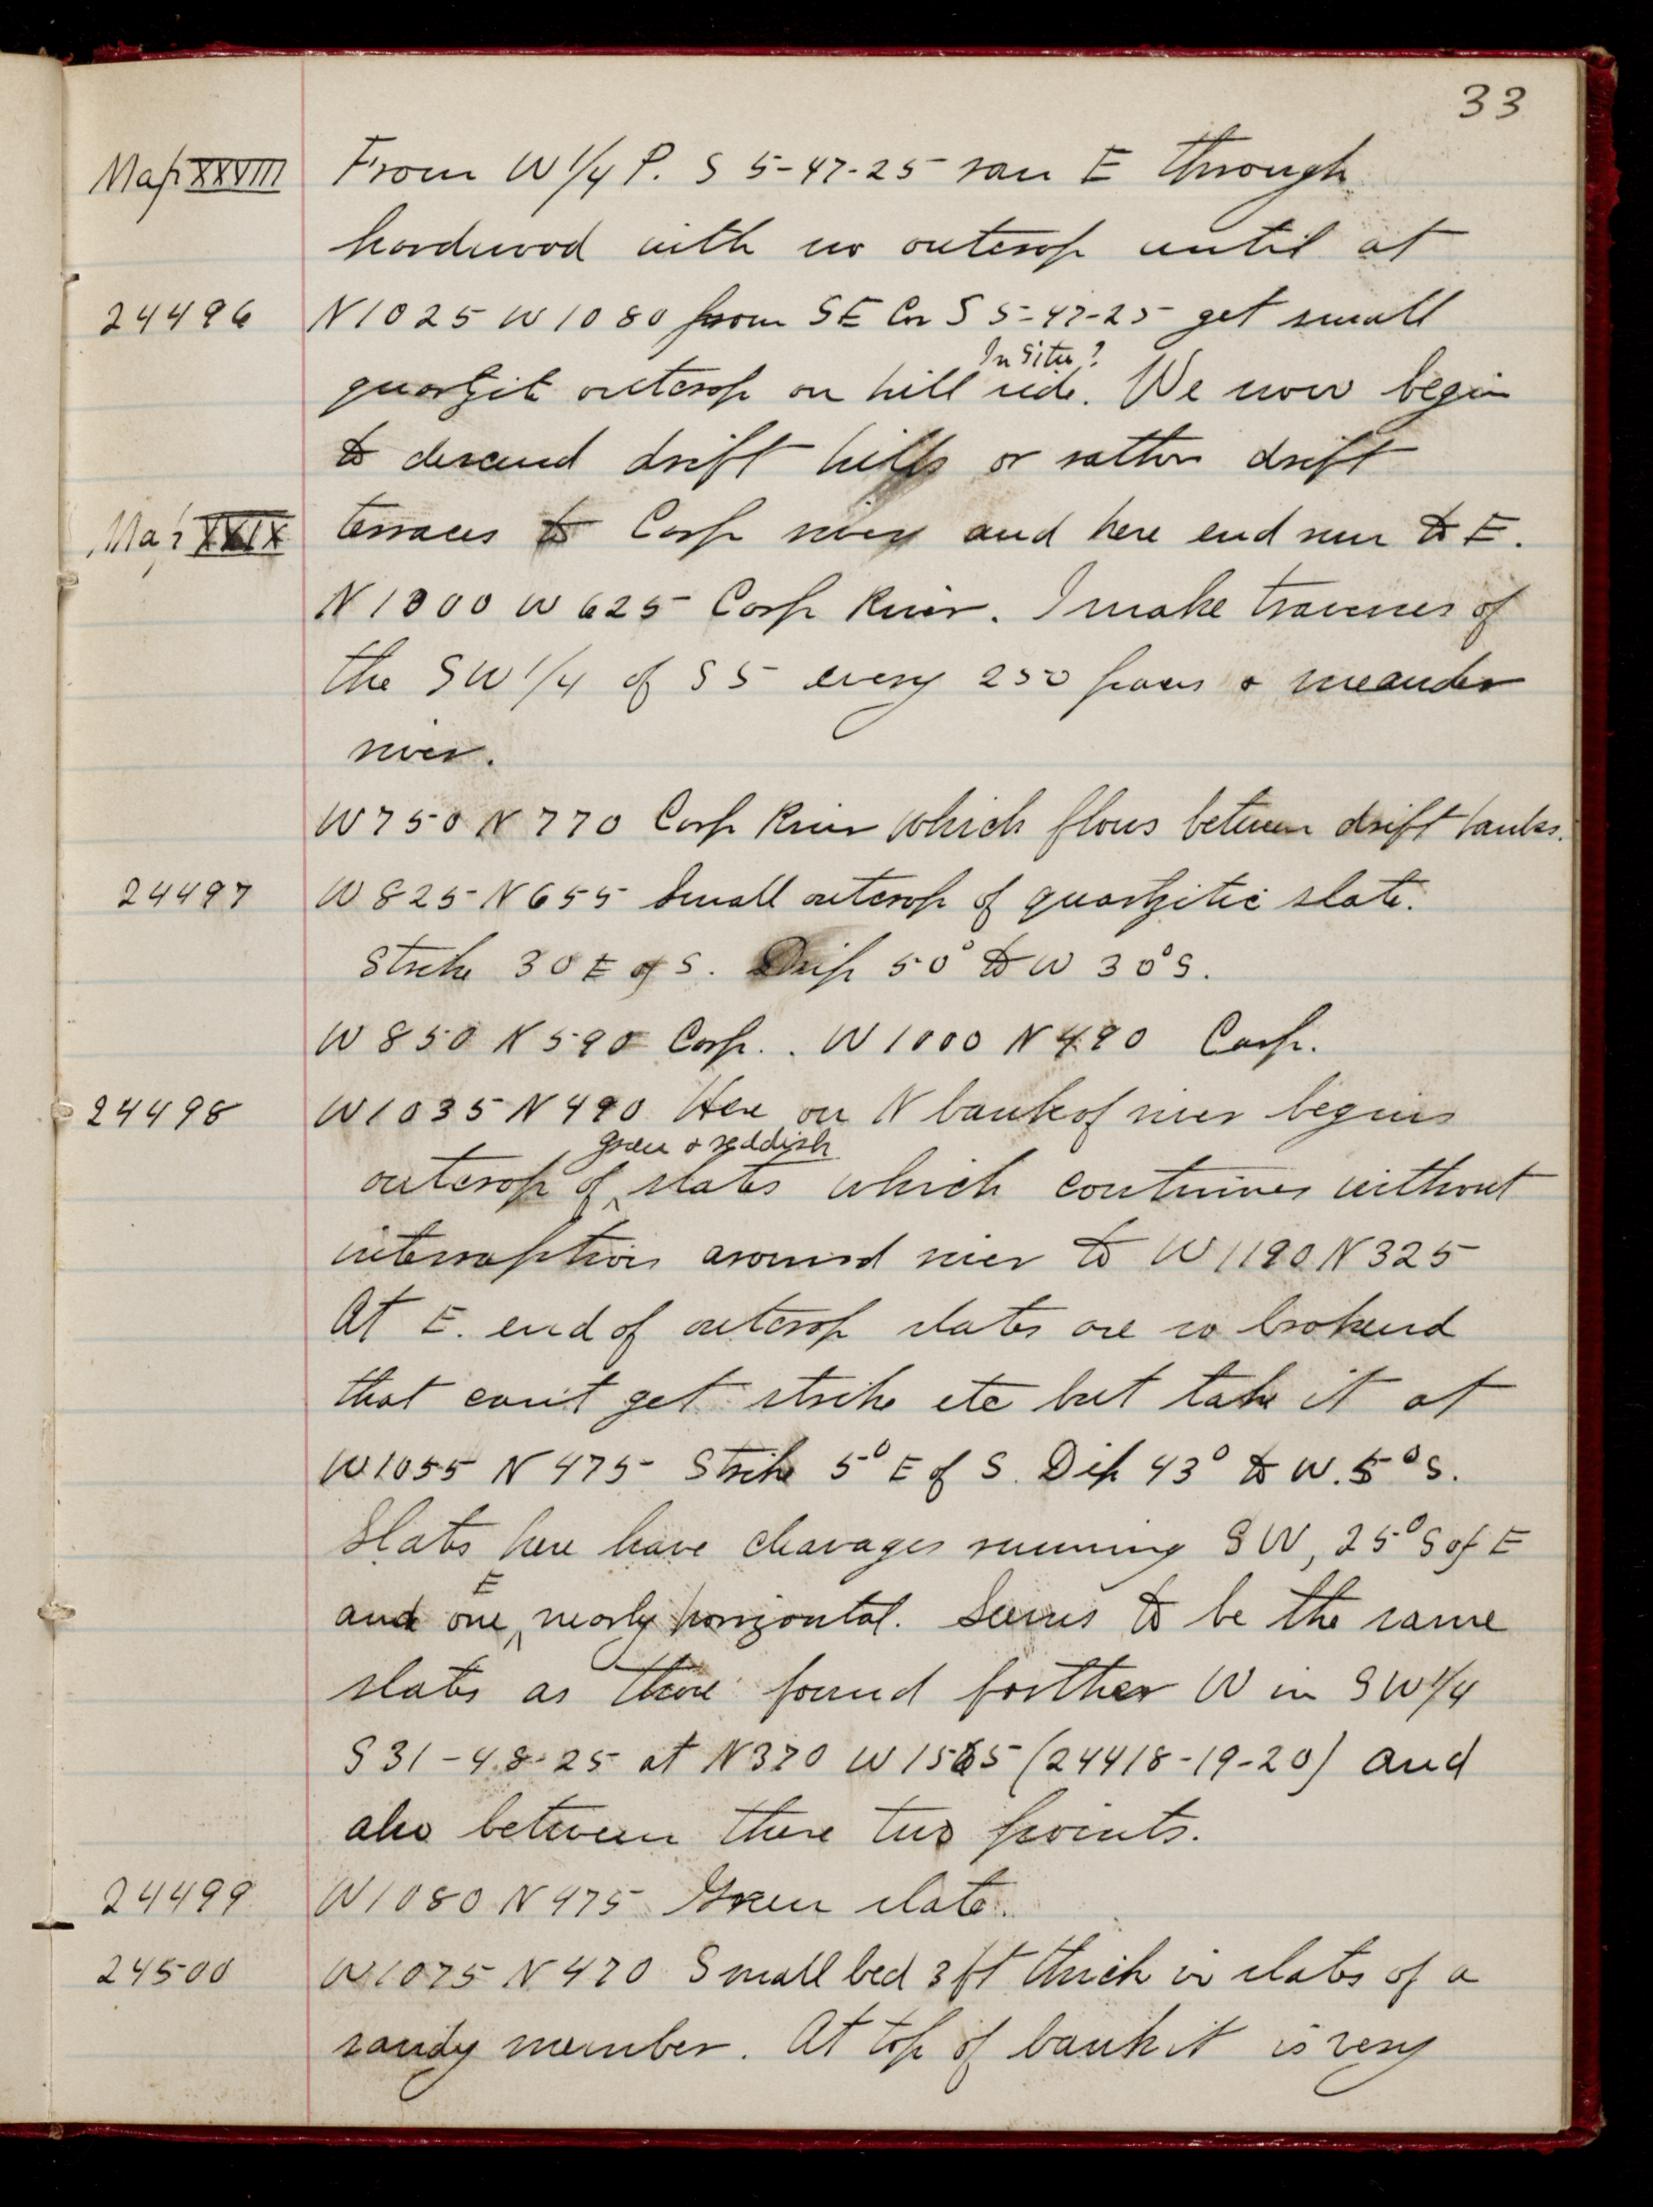 33
Map XXVIII From W 1/4 P. S 5-47-25 ran E through
hardwood with no outcrop until at
24496 N1025 W1080 from SE Cor S 5-47-25 get small
In situ?
quartzite outcrop on hill side. We now begin
to descend drift hills or rather drift
Map XXIX terraces to Carp river and here end run to E.
N1000 W625 Carp River. I make traverses of
the SW 1/4 of S5 every 250 paces & meander
river.
W750 N770 Carp River which flows between drift banks.
24497 W825 N655 Small outcrop of quartzitic slate.
Strike 30 E of S. Dip 50° to W 30° S.
W850 N590 Carp. . W1000 N490 Carp.
24498 W1035 N490 Here on N bank of river begins
green & reddish
outcrop of ^ slates which continues without
interruption around river to W1190 N325
At E. end of outcrop slates are so brokend
that can't get strike etc but take it at
W1055 N475 Strike 5° E of S. Dip 43° to W. 5° S.
Slates here have cleavages running SW, 25° S of E
E
and one ^ nearly horizontal. Seems to be the same
slates as those found farther W in SW 1/4
S31-48-25 at N370 W1565 (24418-19-20) and
also between these two points.
24499 W1080 N475 Green slate.
24500 W1075 N470 Small bed 3 ft thick in slates of a
sandy member. At top of bank it is very